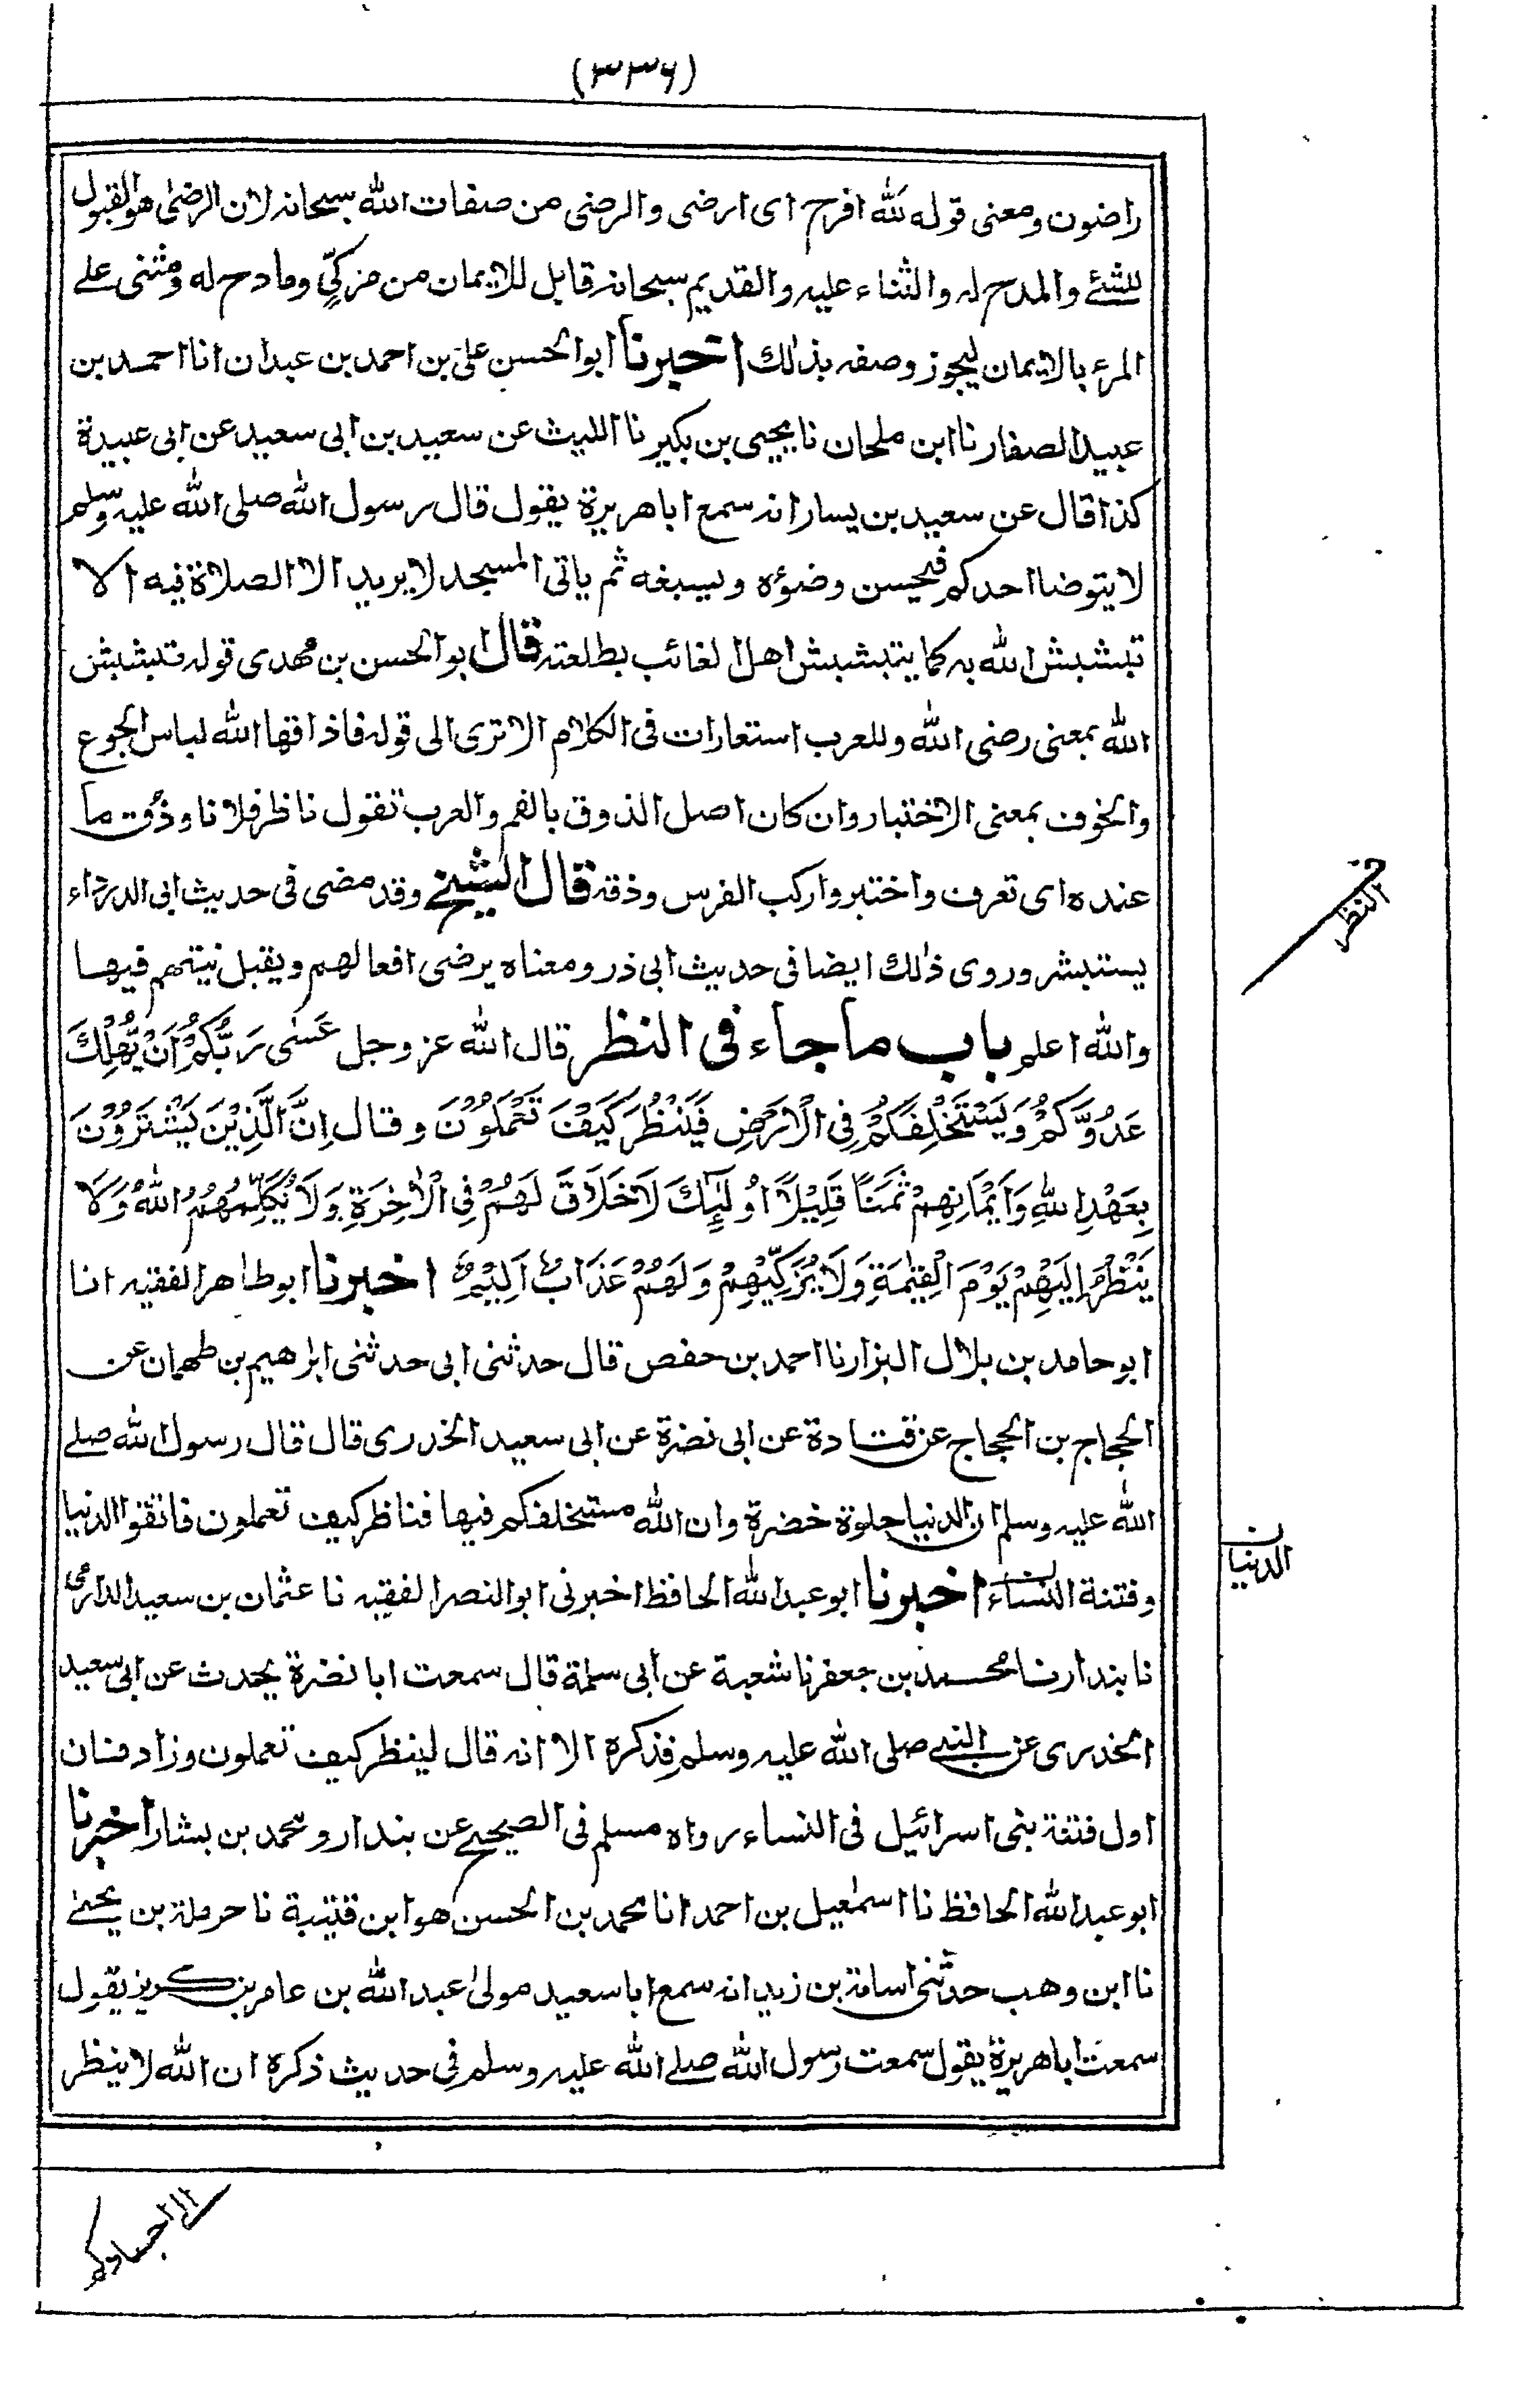 (٣٣٦)
راضون ومعنى قوله لله افرح اى ارضى والرضى من صفات الله سبحانه لان الرضى هو القبول
للشئ والمدح له والثناء عليه والقديم سبحانه قابل للايمان من مزكّي ومادح له ومثنى على
المرء بالايمان ليجوز وصفه بذلك اخبرنا ابو الحسن على بن احمد بن عبدان انا احمد بن
عبيد الصفار نا ابن ملحان نا يحيى بن بكير نا الليث عن سعيد بن ابى سعيد عن ابى عبيدة
كذا قال عن سعيد بن يسار انه سمع ابا هريرة يقول قال رسول الله صلى الله عليه وسلم
لا يتوضا احدكم فيحسن وضؤه ويسبغه ثم ياتى المسجد لا يريد الا الصلاة فيه الا
تبشبش الله به كما يتبشبش اهل الغائب بطلعته قال ابو الحسن بن مهدى قوله تبشبش
الله بمعنى رضى الله وللعرب استعارات فى الكلام الا ترى الى قوله فاذاقها الله لباس الجوع
والخوف بمعنى الاختبار وان كان اصل الذوق بالفم والعرب تقول ناظر فلانا وذق ما
عنده اى تعرف واختبر واركب الفرس وذقه قال الشيخ وقد مضى فى حديث ابى الدرداء
النظر
يستبشر وروى ذلك ايضا فى حديث ابى ذر ومعناه يرضى افعالهم ويقبل نيتهم فيها
والله اعلم باب ما جاء فى النظر قال الله عز وجل عَسٰى رَبُّكُمْ اَنْ يُّهْلِكَ
عَدُوَّكُمْ وَيَسْتَخْلِفَكُمْ فِى الْاَرْضِ فَيَنْظُرَ كَيْفَ تَعْمَلُوْنَ وقال اِنَّ الَّذِيْنَ يَشْتَرُوْنَ
بِعَهْدِ اللهِ وَاَيْمَانِهِمْ ثَمَنًا قَلِيْلًا اُولٰٓئِكَ لَا خَلَاقَ لَهُمْ فِى الْاٰخِرَةِ وَلَا يُكَلِّمُهُمُ اللهُ وَلَا
يَنْظُرُ اِلَيْهِمْ يَوْمَ الْقِيٰمَةِ وَلَا يُزَكِّيْهِمْ وَلَهُمْ عَذَابٌ اَلِيْمٌ اخبرنا ابو طاهر الفقيه انا
ابو حامد بن بلال البزار نا احمد بن حفص قال حدثنى ابى حدثنى ابراهيم بن طهمان عن
الحجاج بن الحجاج عن قتادة عن ابى نضرة عن ابى سعيد الخدرى قال قال رسول الله صلى
الله عليه وسلم ان الدنيا حلوة خضرة وان الله مستخلفكم فيها فناظر كيف تعملون فاتقوا الدنيا
الدنيا ن
وفتنة النساء اخبرنا ابو عبد الله الحافظ اخبرنى ابو النصر الفقيه نا عثمان بن سعيد الدارمى
نا بندار نا محمد بن جعفر نا شعبة عن ابى سلمة قال سمعت ابا نضرة يحدث عن ابى سعيد
الخدرى عن النبى صلى الله عليه وسلم فذكره الا انه قال لينظر كيف تعملون وزاد فان
اول فتنة بنى اسرائيل فى النساء رواه مسلم فى الصحيح عن بندار ومحمد بن بشار اخبرنا
ابو عبد الله الحافظ نا اسمٰعيل بن احمد انا محمد بن الحسن هو ابن قتيبة نا حرملة بن يحيى
نا ابن وهب حدثنى اسامة بن زيد انه سمع ابا سعيد مولى عبد الله بن عامر بن كريز يقول
سمعت ابا هريرة يقول سمعت رسول الله صلى الله عليه وسلم فى حديث ذكره ان الله لا ينظر
الى اجسادكم